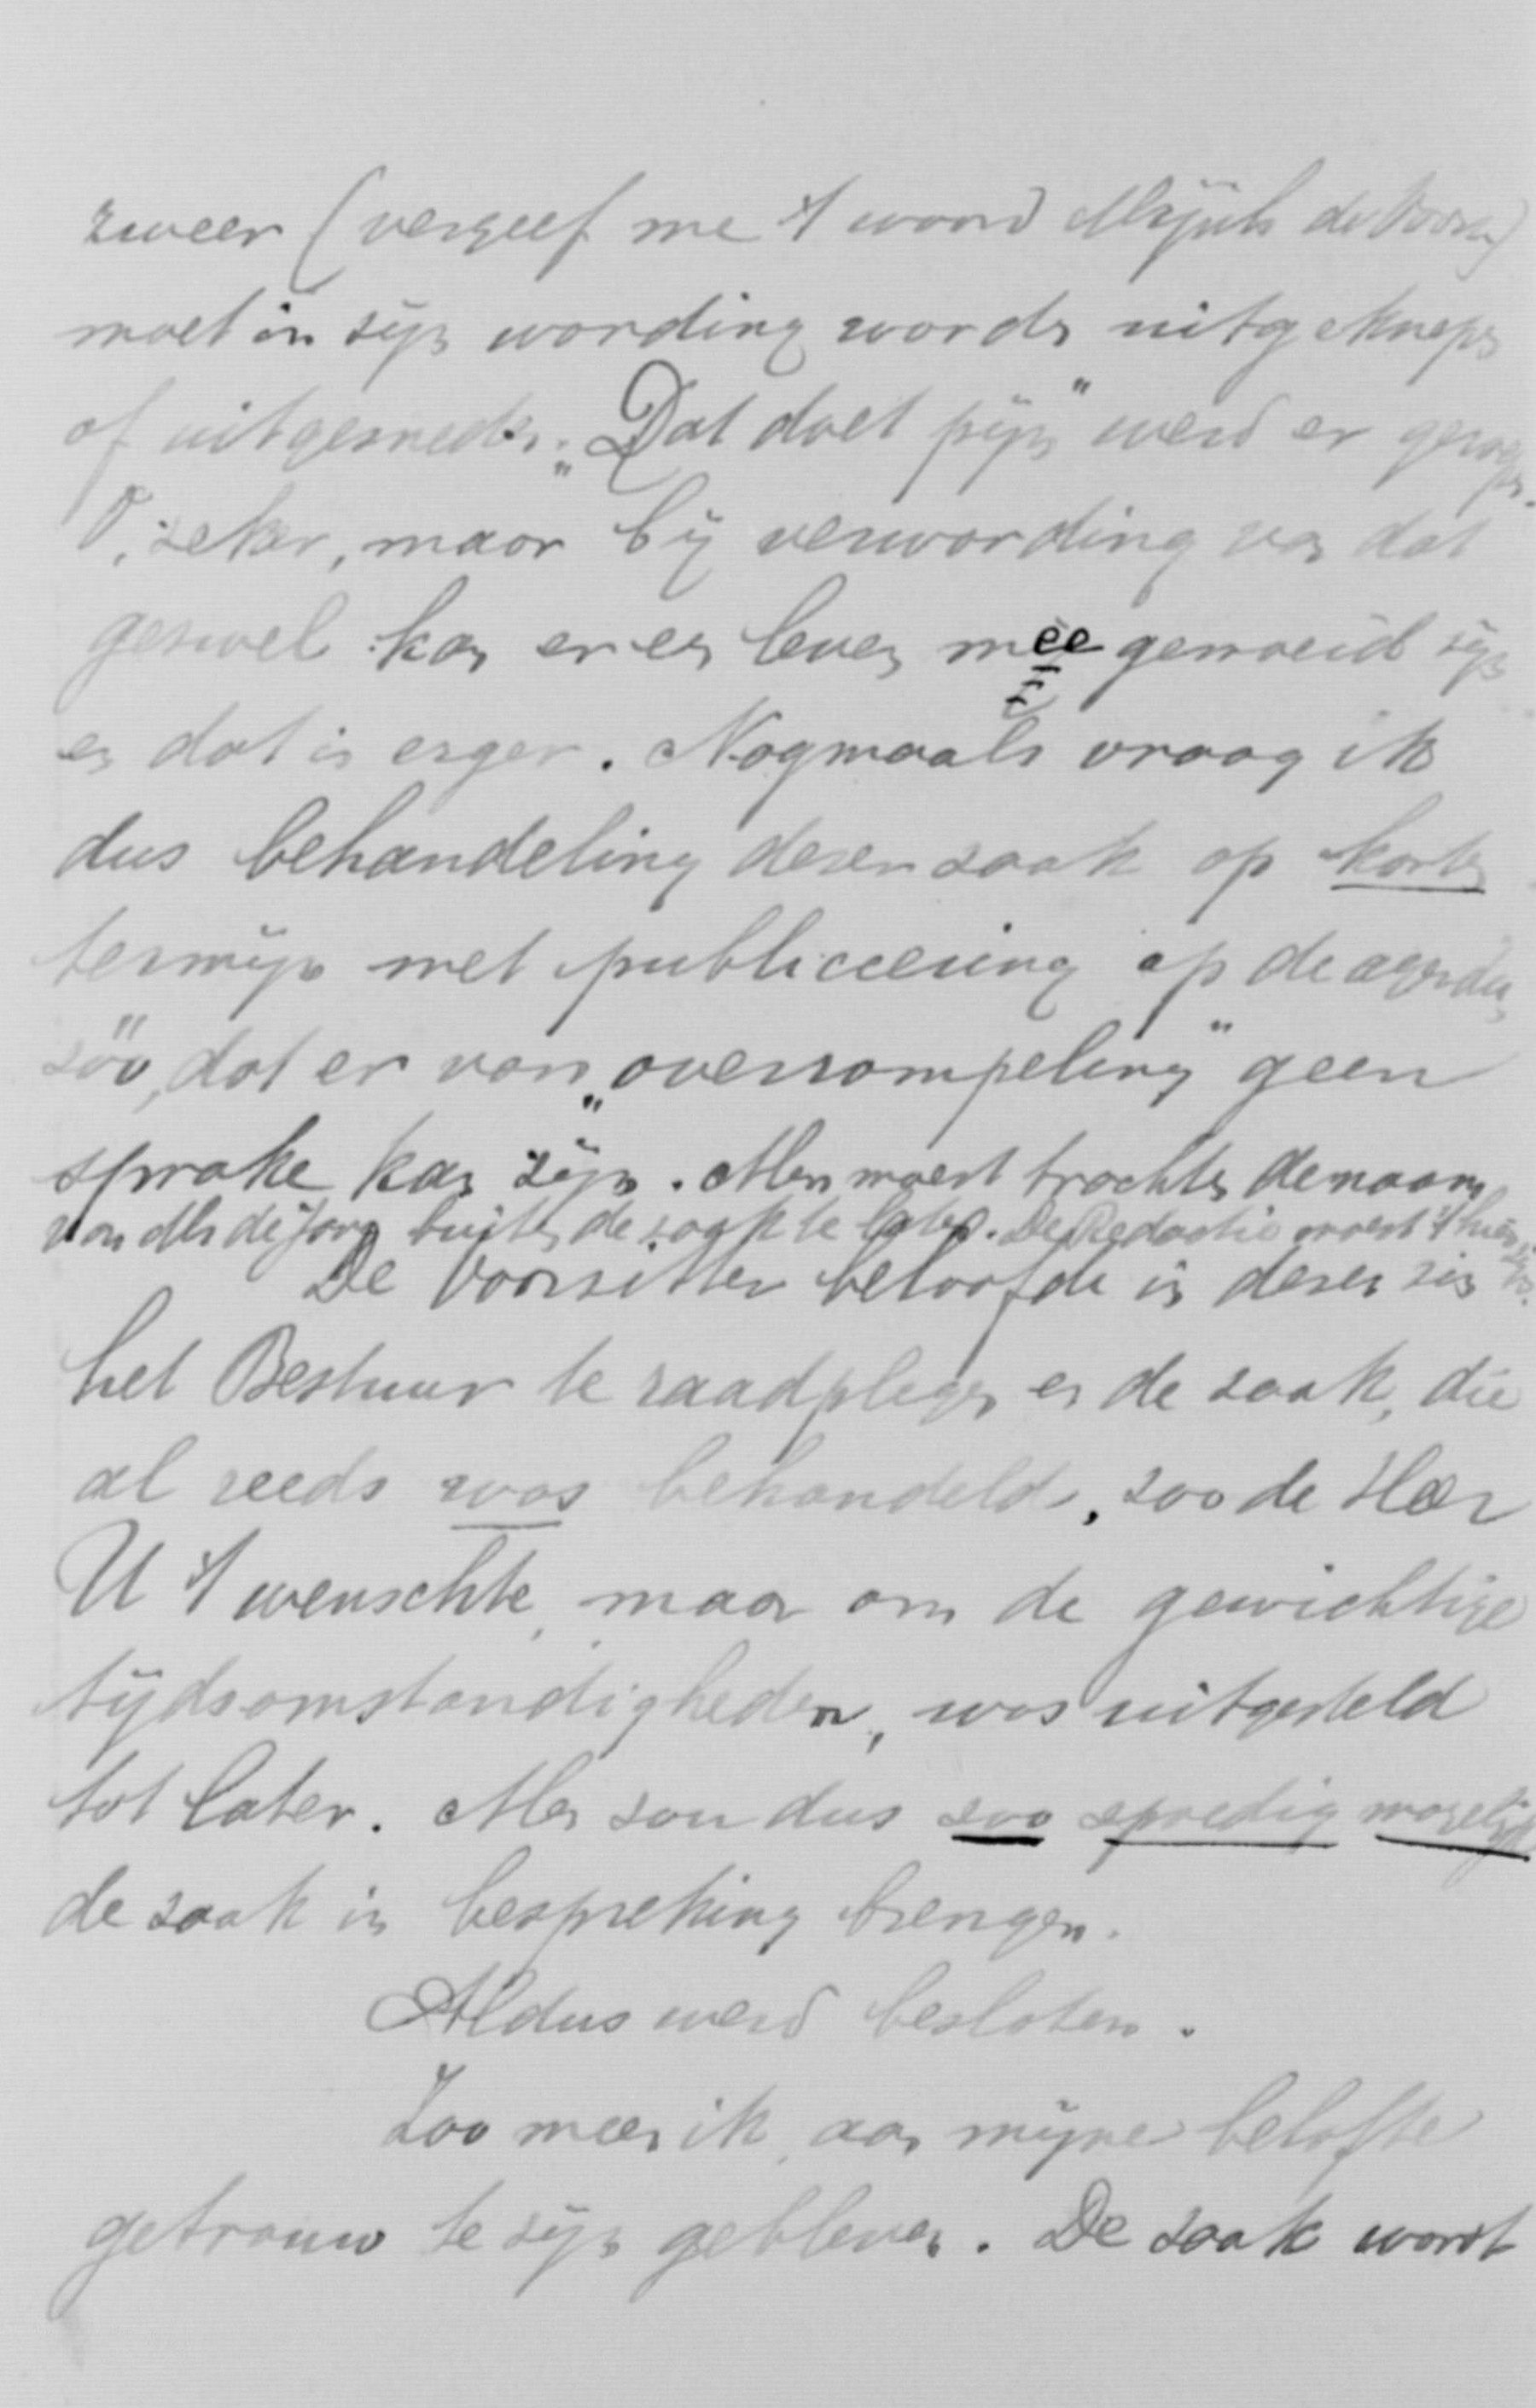 zweer (vergeef me 't woord Mijnh de Voorz)
moet in zijn wording worden uitgeknepen
of uitgesneden. „Dat doet pijn" werd er geroepen.
O, zeker, maar bij verwording van dat
gezwel kan er een leven mee gemoeid zijn
en dat is erger. Nogmaals vraag ik
dus behandeling dezer zaak op korten
termijn met publiceering op de agenda,
zóó, dat er van „overrompeling" geen
sprake kan zijn. Men moest trachten de naam
van Mr de Jong buiten de zaak te laten. De Redactie moest 't
De Voorzitter beloofde in dezen zin
het Bestuur te raadplegen en de zaak, die
al reeds was behandeld, zoo de Heer
U 't wenschte, maar om de gewichtige
tijdsomstandigheden, was uitgesteld
tot later. Men zou dus zoo spoedig mogelijk
de zaak in bespreking brengen.
Aldus werd besloten.
Zoo meen ik, aan mijne belofte
getrouw te zijn gebleven. De zaak wordt